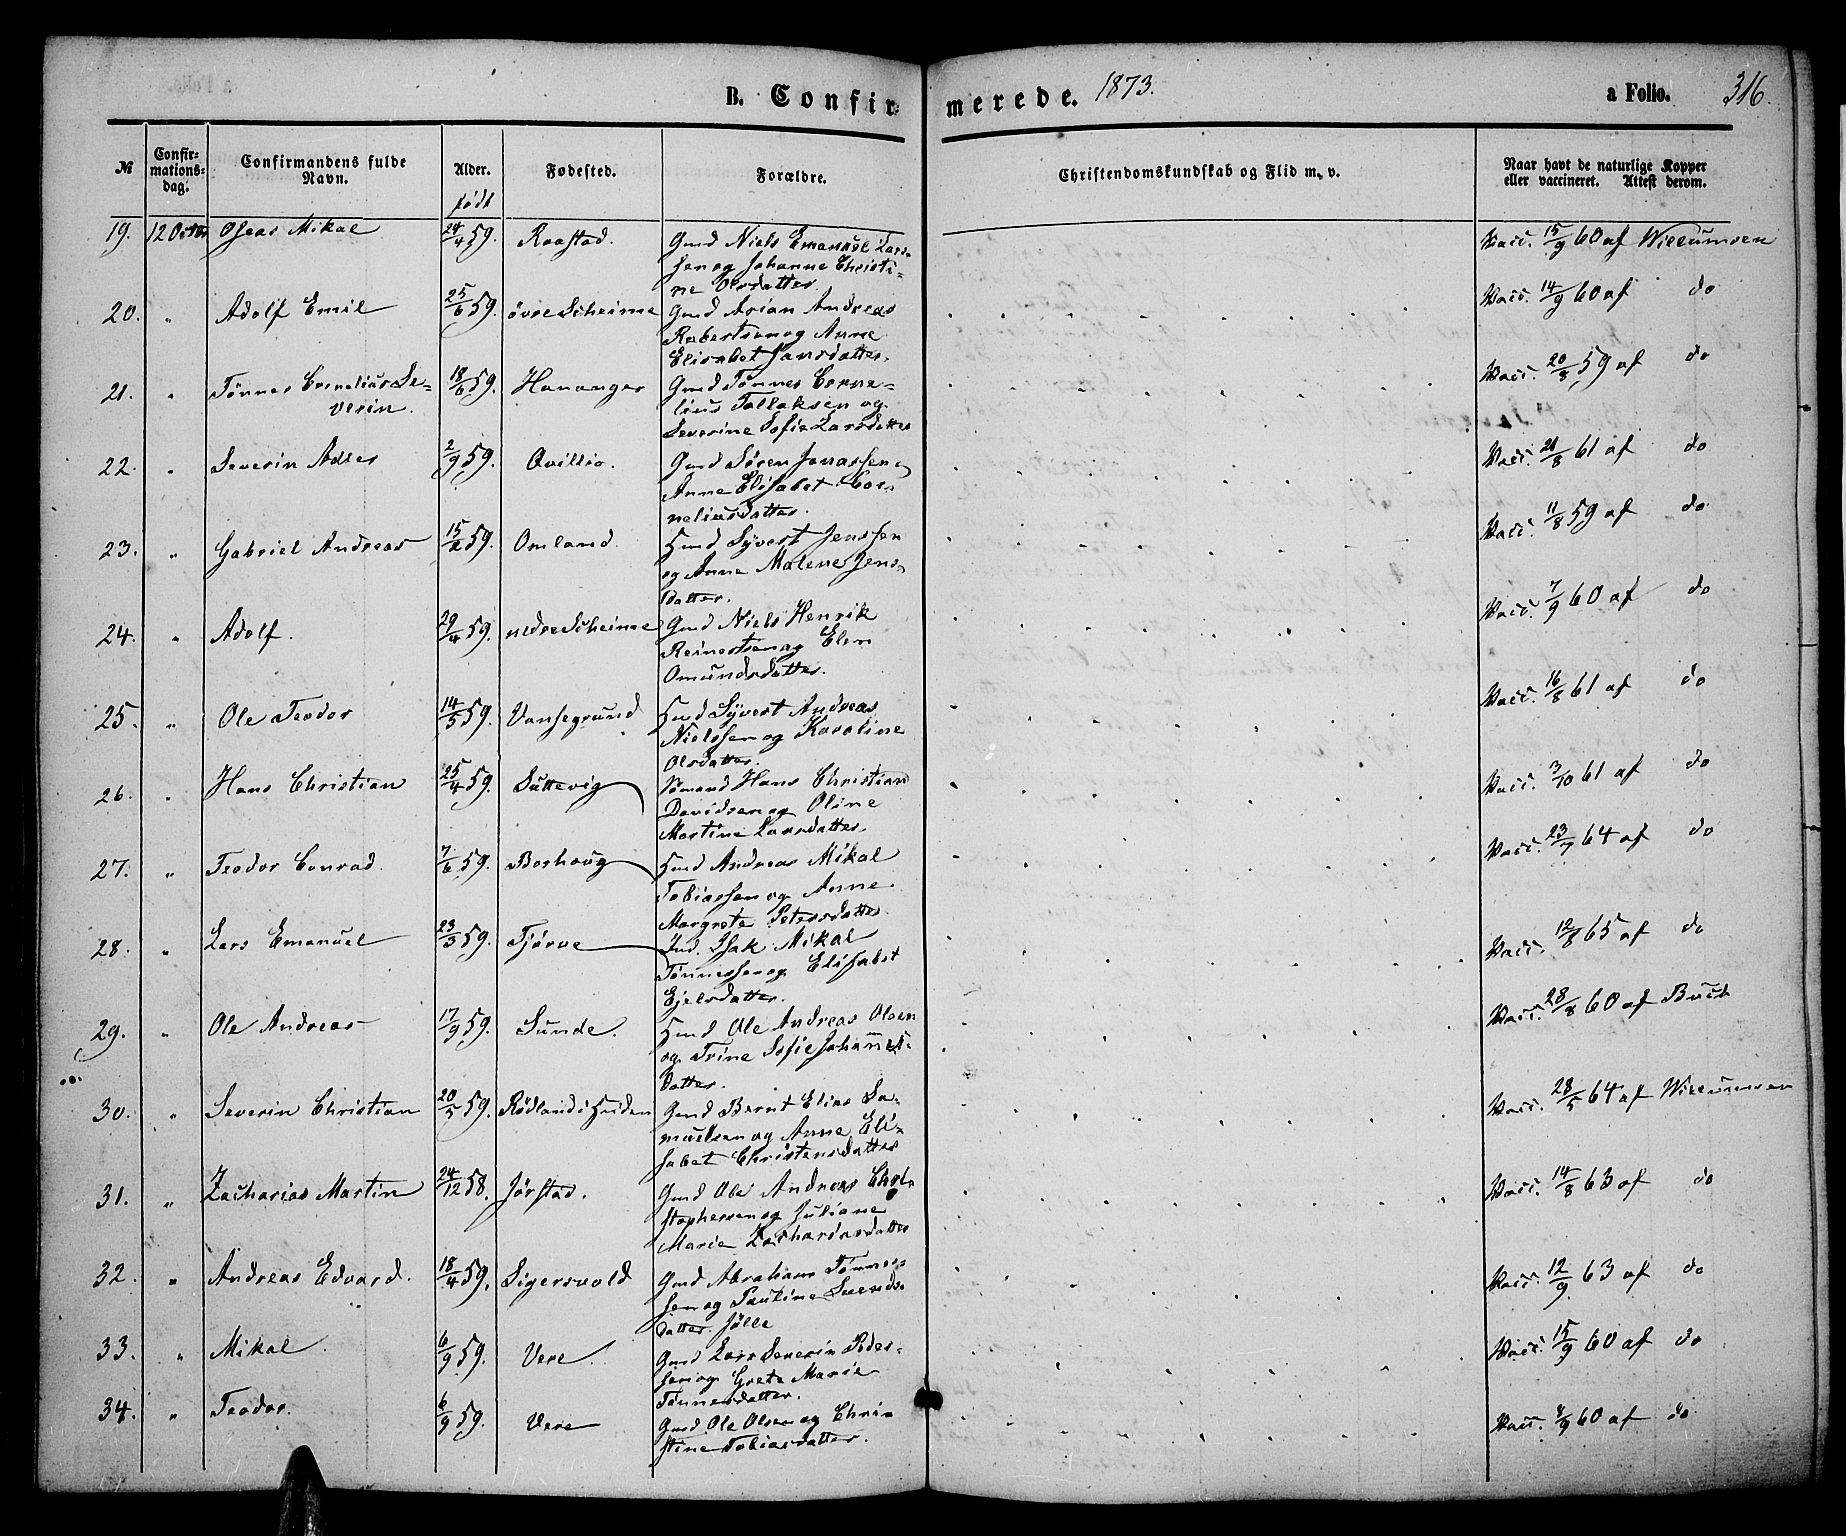 B. Confirmerede. 1873. a Folio. 316.
№ Confirmationsdag. Confirmandens fulde Navn. Alder. født Fødested. Forældre. Christendomskundskab og Flid m. v. Naar havt de naturlige Kopper eller vaccineret. Attest derom.
19. 12 Octbr Oseas Mikal 24/4 59. Raastad. Gmd Niels Emanuel Lars- Vacc. 15/9 60 af Willumsen
sen og Johanne Christi-
ne Olsdatter
20. " Adolf Emil 25/6 59. øvre Scheime Gmd Arian Andreas Vacc. 14/9 60 af do
Robertsen og Anne
Elisabet Jansdatter.
21. " Tønnes Cornelius Se- 18/6 59. Hananger Gmd Tønnes Corne- Vacc. 20/8 59 af do
verin. lius Tollaksen og
Severine Sofie Larsdatter
22. " Severin Adler 2/9 59. Qvillio. Gmd Søren Jonassen Vacc. 21/8 61 af do
Anne Elisabet Cor-
neliusdatter.
23. " Gabriel Andreas 15/2 59. Omland. Hmd Syvert Jenssen Vacc. 11/8 59 af do
og Anne Malene Jens-
datter.
24. " Adolf. 29/4 59. nedre Scheime Gmd Niels Henrik Vacc. 7/9 60 af do
Reinertsen og Elen
Omundsdatter.
25. " Ole Teodor 14/5 59. Vansegrund Hmd Syvert Andreas Vacc. 16/8 61 af do
Nielssen og Karoline
Olsdatter.
26. " Hans Christian 25/4 59. Luttevig Sømand Hans Christian Vacc. 3/10 61 af do
Davidsen og Oline
Martine Larsdatter.
27. " Teodor Conrad. 7/6 59. Borhaug Hmd Andreas Mikal Vacc. 23/7 64 af do
Tobiassen og Anne
Margrete Petersdatter.
28. " Lars Emanuel 23/3 59. Tjørve Ind. Isak Mikal Vacc. 12/8 65 af do
Tønnessen og Elisabet
Ejelsdatter.
29. " Ole Andreas 17/9 59. Sunde. Hmd Ole Andreas Olsen Vacc. 28/8 60 af Buch
og Trine Sofie Johannes-
datter.
30. " Severin Christian 20/5 59. Rødland i Heiden Gmd Bernt Elias Sa- Vacc. 28/5 64 af Willumsen
muelsen og Anne Eli-
sabet Christensdatter
31. " Zacharias Martin 24/12 58. Jørstad. Gmd Ole Andreas Chri- Vacc. 14/8 63 af do
stophersen og Juliane
Marie Zachariasdatter
32. " Andreas Edvard. 18/4 59. Sigersvold Gmd Abraham Tønnes- Vacc. 12/9 63 af do
sen og Pauline Svends-
datter. Jølle
33. " Mikal. 6/9 59. Vere. Gmd Lars Severin Peder- Vacc. 15/9 60 af do
sen og Grete Marie
Tønnesdatter.
34. " Teodor. 6/9 59. Vere Gmd Ole Olsen og Chri- Vacc. 8/9 60 af do
stine Tobiasdatter.